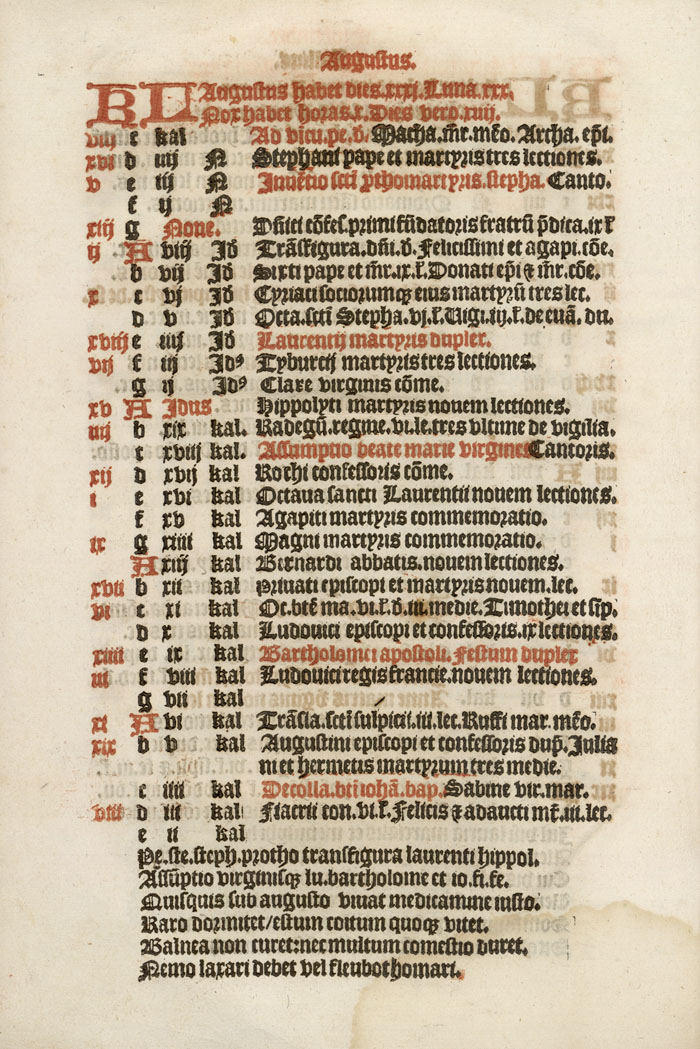 Augustus.
KL Augustus habet dies.xxxj.Luna.xxx.
Nox habet horas.x.Dies vero.xiiij.
viij c kal Ad vĩcu.pe.d.Macha.m̃r.mẽo.Archa.ep̃i.
xvi d iiij N Stephani pape et martyris tres lectiones.
v e iij N Inuẽtio sctĩ ꝓthomartyris.stepha.Canto.
f ij N
xiij g None. Dñici cõfes.primi fũdatoris fratrũ p̃dica.ix ł
ij A viij Id Trãsfigura.dñi.d.Felicissimi et agapi.cõe.
b vij Id Sixti pape et m̃r.ix.ł.Donati ep̃i ⁊ m̃r.cõe.
x c vj Id Cyriaci sociorumqꝫ eius martyrũ tres lec.
d v Id Octa.sctĩ Stepha.vj.ł.Uigi.iij.ł.de euã.du.
xviij e iiij Id Laurentij martyris duplex.
vij f iij Idꝰ Tyburcij martyris tres lectiones.
g ij Idꝰ Clare virginis cõme.
xv A Idus Hippolyti martyris nouem lectiones.
iiij b xix kal. Radegũ.regine.vi.le.tres vltime de vigilia.
c xviij kal. Assumptio beate marie virgines Cantoris.
xij d xvij kal Rochi confessoris cõme.
i e xvi kal Octaua sancti Laurentii nouem lectiones.
f xv kal Agapiti martyris commemoratio.
ix g xiiii kal Magni martyris commemoratio.
A xiij kal Bernardi abbatis.nouem lectiones.
xvii b xii kal Priuati episcopi et martyris nouem.lec.
vi c xi kal Oc.btẽ ma.vi.ł.d.iii.medie.Timothei et sĩp.
d x kal Ludouici episcopi et confessoris.ix lectiones.
xiiii e ix kal Bartholomei apostoli.Festum duplex
iii f viii kal Ludouici regis francie.nouem lectiones.
g vii kal
xi A vi kal Trãsla.sctĩ sulpicii.iii.lec.Ruffi mar.mẽo.
xix b v kal Augustini episcopi et confessoris dup̃.Julia
ni et hermetis martyrum tres medie.
c iiii kal Decolla.btĩ iohã.bap.Sabine vir.mar.
viii d iii kal Fiacrii con.vi.ł.Felicis ⁊ adaucti mr̃.iii.lec.
e ii kal
Pe.ste.steph.protho transfigura laurenti hippol.
Assũptio virginisqꝫ lu.bartholome et io.fi.fe.
Quisquis sub augusto viuat medicamine iusto.
Raro dormitet/estum coitum quoqꝫ vitet.
Balnea non curet:nec multum comestio duret.
Nemo laxari debet vel fleubothomari.